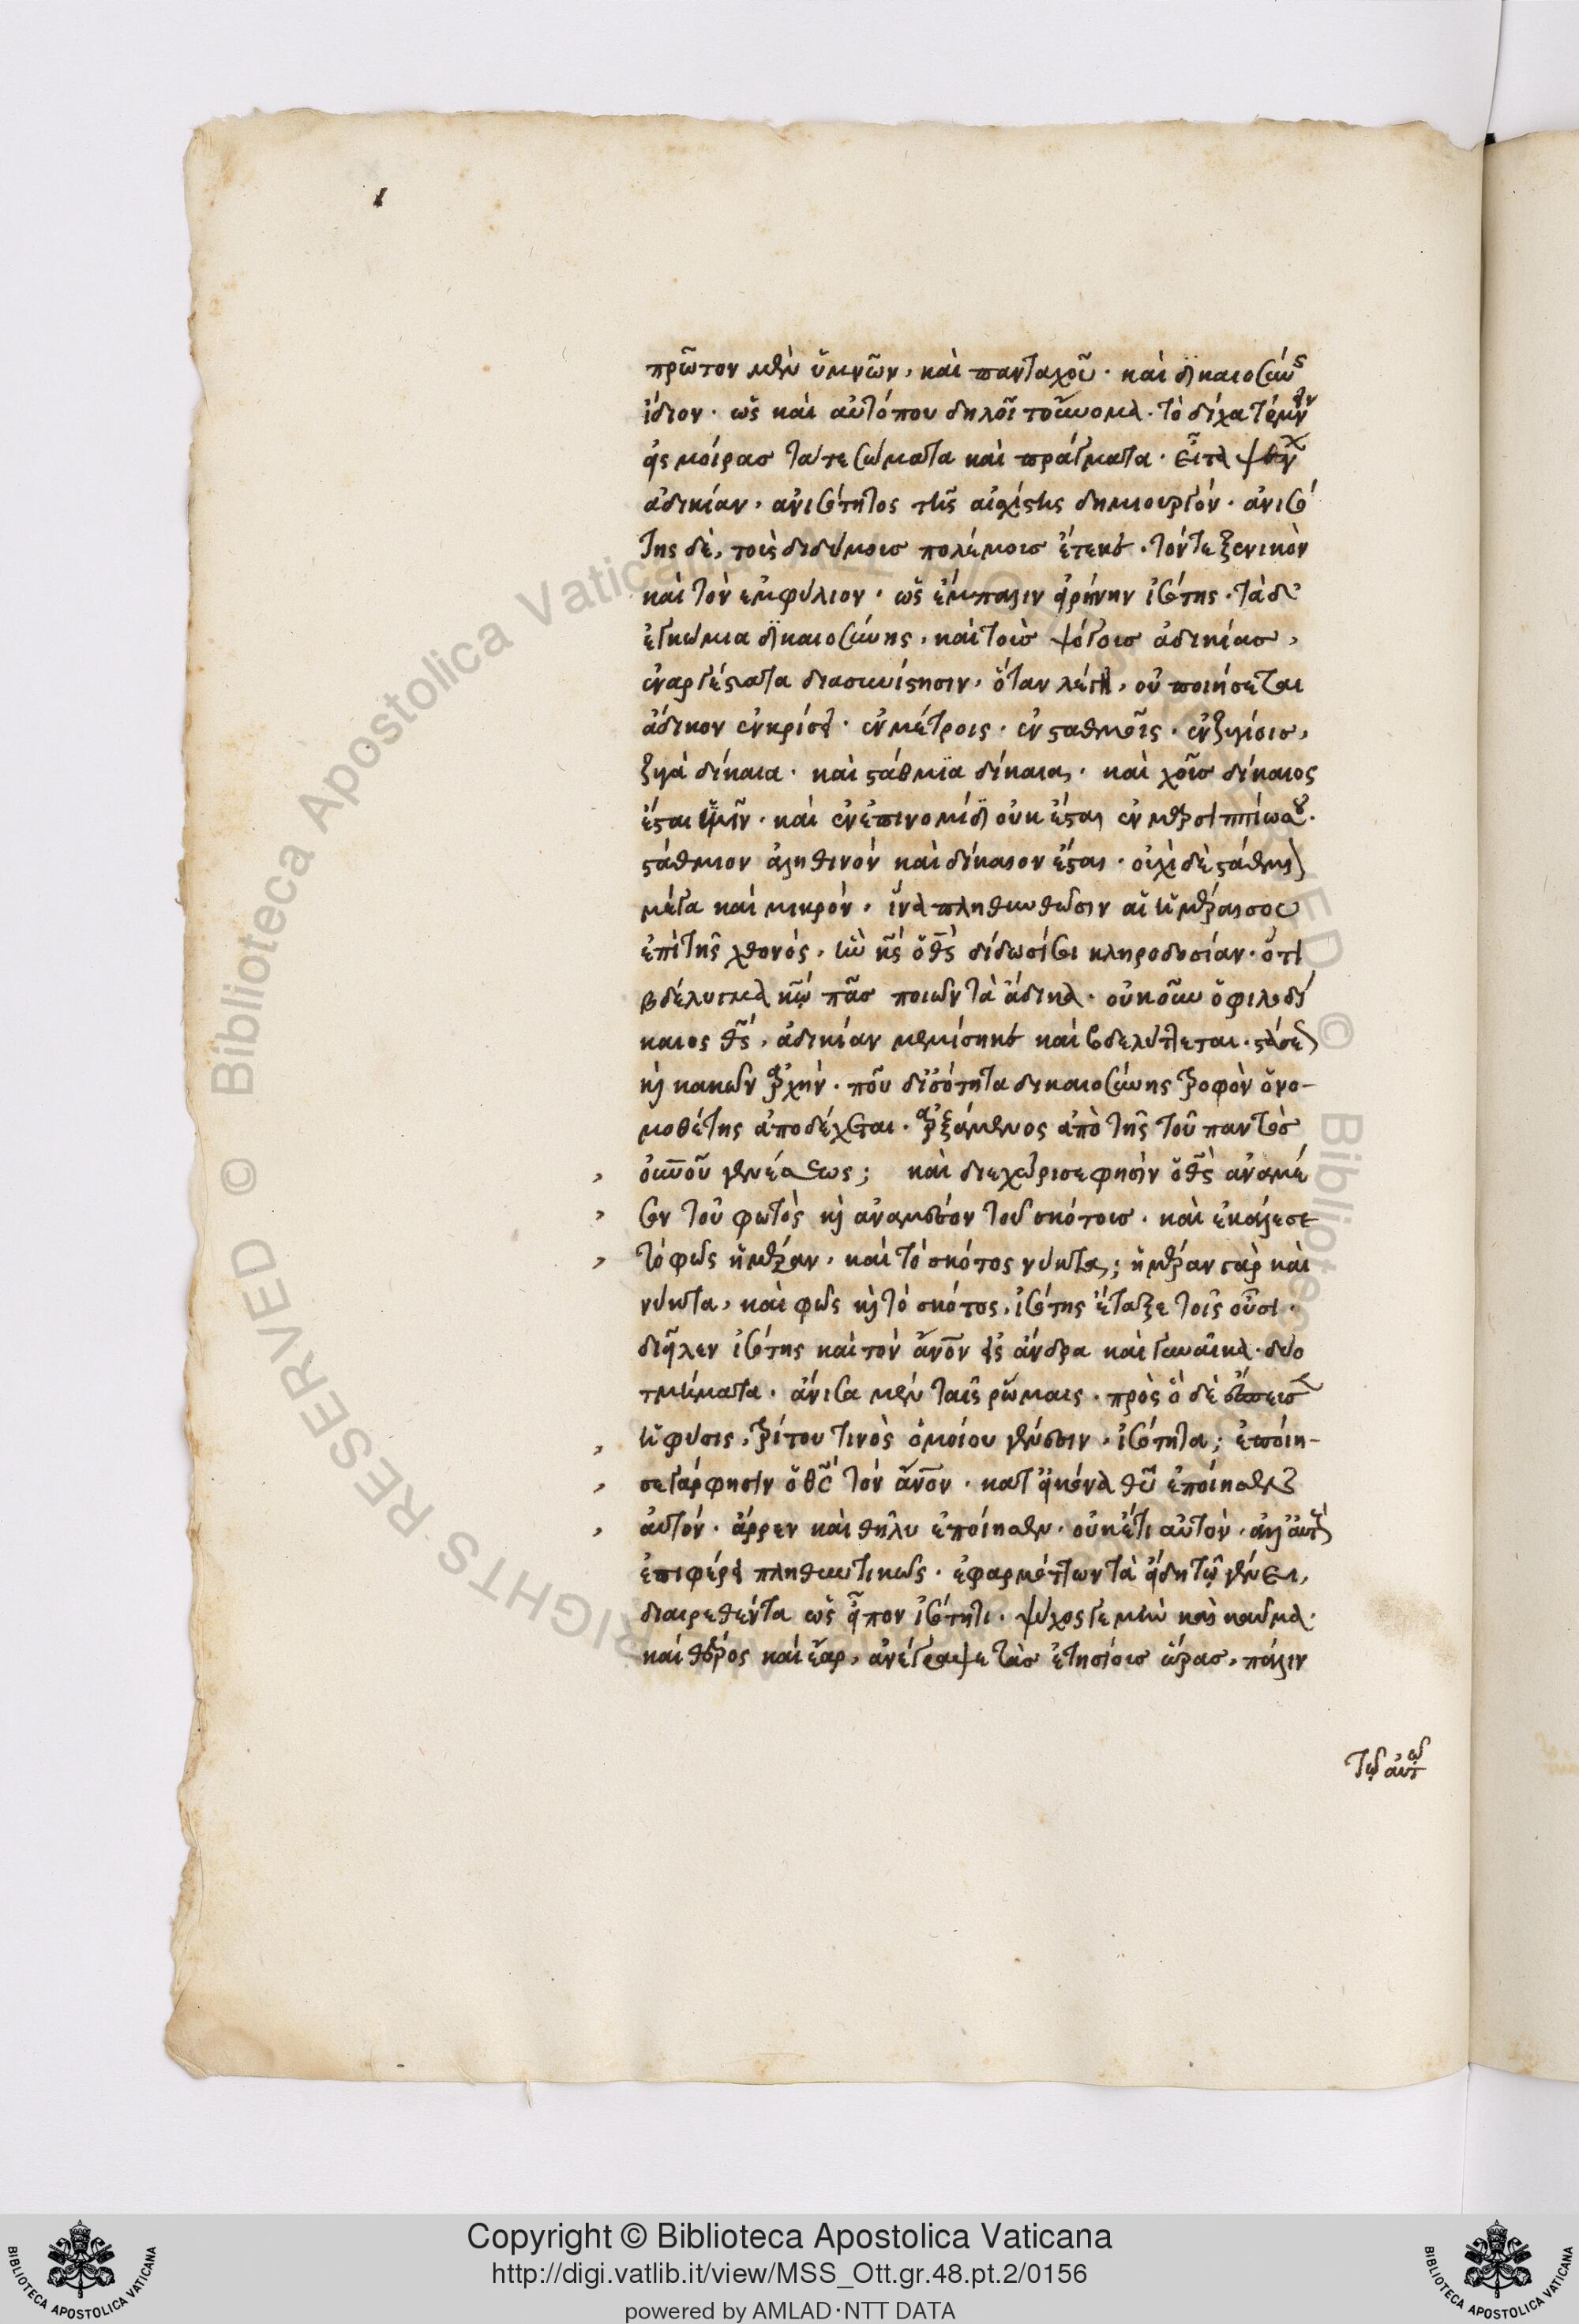 πρῶτον μὲν ὑμνῶν, καὶ πανταχοῦ. καὶ δικαιοσύνης
ἴδιον. ὡς καὶ αὐτόπου δηλοῖ τοὔνομα. τὸ δίχα τέμνειν
εἰς μοίρας τά τε σώματα καὶ πράγματα. εἶτα
ἀδικίαν, ἀνισότητος τῆς αἰσχίστης δημιουργόν. ἀνισό
της δὲ, τοὺς διδύμοις πολέμοις ἔτεκε. τόν τε ξενικὸν
καὶ τὸν ἐμφύλιον. ὡς ἔμπαλιν εἰρήνην ἰσότης. τὰ δὲ
ἐγκώμια δικαιοσύνης, καὶ τοὺς ψόγους ἀδικίας,
ἐναργέστατα διασυνίστησιν, ὅταν λέγῃ, οὐ ποιήσεται
ἄδικον ἐν κρίσει. ἐν μέτροις. ἐν σταθμοῖς. ἐν ζυγίοις,
ζυγὰ δίκαια. καὶ στάθμια δίκαια. καὶ χοῦς δίκαιος
ἔσται ὑμῖν. καὶ ἐν ἐπινομίδι οὐκ ἔσται ἐν μαρσιππίω σου.
στάθμιον ἀληθινὸν καὶ δίκαιον ἔσται. οὐχὶ δὲ στάθμιον
μέγα καὶ μικρόν, ἵνα πληθυνθῶσιν αἱ ἡμέραι σου
ἐπὶ τῆς χθονὸς, ἣν κς̄ ὁ θς̄ δίδωσί σοι κληροδοσίαν. ὅτι
βδέλυγμα κω̄ πᾶς ποιῶν τὰ ἄδικα. οὐκοῦν ὁ φιλοδί
καιος θς̄, ἀδικίαν μεμίσηκε καὶ βδελύττεται. στάσεων
καὶ κακῶν ἀρχήν. ποῦ δ' ἰσότητα δικαιοσύνης τροφὸν ὁ νο-
μοθέτης ἀποδέχεται. ἀρξάμενος ἀπὸ τῆς τοῦ παντὸς
οὐνοῦ γενέσεως; καὶ διεχώρισε φησὶν ὁ θς̄ ἀναμέ
σον τοῦ φωτὸς καὶ ἀναμέσον τοῦ σκότους. καὶ ἐκάλεσε
τὸ φῶς ἡμέραν. καὶ τὸ σκότος νύκτα; ἡμέραν γὰρ καὶ
νύκτα, καὶ φῶς καὶ τὸ σκότος, ἰσότης ἔταξε τοῖς οὖσι.
διεῖλεν ἰσότης καὶ τὸν ἄνον εἰς ἄνδρα καὶ γυναῖκα. δύο
τμήματα. ἄνισα μὲν ταῖς ῥώμαις. πρὸς ὃ δὲ
ἡ φύσις, τρίτου τινὸς ὁμοίου γένεσιν, ἰσότητα; ἐποίη-
σε γάρ φησιν ὁ θς̄ τὸν ἄνον. κατ' εἰκόνα θῡ ἐποίησεν
αὐτόν. ἄρρεν καὶ θῆλυ ἐποίησεν. οὐκέτι αὐτὸν. ἀλλ' αὐτοὺς
ἐπιφέρει πληθυντικῶς. ἐφαρμόττων τὰ εἴδη τῷ γένει,
διαιρεθέντα ὡς εἶπον ἰσότητι. ψῦχος γε μὴν καὶ καῦμα.
καὶ θέρος καὶ ἔαρ, ἀνέγραψε τὰς ἐτησίους ὥρας, πάλιν
τῷ αὐτῷ
Copyright © Biblioteca Apostolica Vaticana
http://digi.vatlib.it/view/MSS_Ott.gr.48.pt.2/0156
powered by AMLAD·NTT DATA